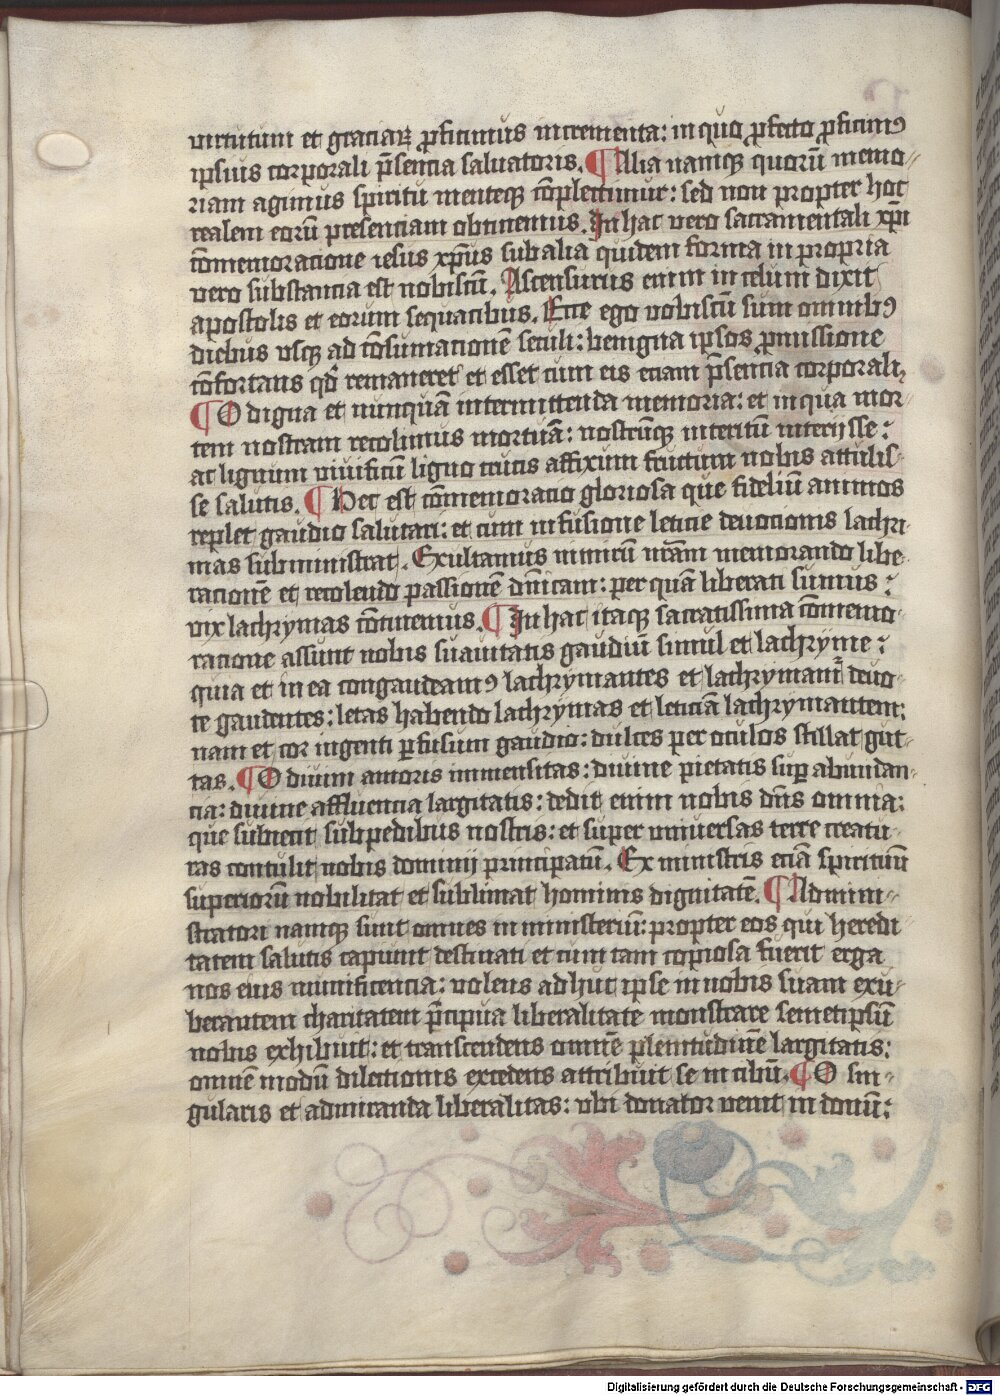 virtutum et graciaꝝ ꝓficimus incrementa: in quo ꝓfecto ꝓficimꝰ
ipsius corporali p̄sencia saluatoris. ¶ Alia namqꝫ quorū memo⸗
riam agimus spiritu menteqꝫ cōplectimur: sed non propter hoc
realem eorū presenciam obtinemus. In hac vero sacramentali xp̄i
cōmemoracione iesus xp̄us sub alia quidem forma in propria
vero substancia est nobiscū. Ascensurus enim in celum dixit
apostolis et eorum sequacibus. Ecce ego vobiscū sum omnibꝰ
diebus vsqꝫ ad cōsumacionē seculi: benigna ipsos ꝓmissione
cōfortans qđ remaneret et esset cum eis eciam p̄sencia corporali.
¶ O digna et nunquā intermittenda memoria: et in qua mor⸗
tem nostram recolimus mortuā: nostrūqꝫ interitū interijsse:
ac lignum viuificū ligno crucis affixum fructum nobis attulis⸗
se salutis. ¶ Hec est cōmemoracio gloriosa que fideliū animos
replet gaudio salutari: et cum infusione leticie deuocionis lachri⸗
mas subministrat. Exultamus nimirū nr̄am memorando libe⸗
racionē et recolendo passionē dn̄icam: per quā liberati sumus:
vix lachrymas cōtinemus. ¶ In hac itaqꝫ sacratissima cōmemo⸗
racione assunt nobis suauitatis gaudiū simul et lachryme:
quia et in ea congaudeamꝰ lachrymantes et lachrymamꝰ deuo⸗
te gaudentes: letas habendo lachrymas et leticiā lachrymantem:
nam et cor ingenti ꝑfusum gaudio: dulces per oculos stillat gut⸗
tas. ¶ O diuini amoris immensitas: diuine pietatis suꝑabundan⸗
cia: diuine affluencia largitatis: dedit enim nobis dn̄s omnia:
que subiecit sub pedibus nostris: et super vniuersas terre creatu⸗
ras contulit nobis dominij principatū. Ex ministris eciā spirituū
superiorū nobilitat et sublimat hominis dignitatē. ¶ Admini⸗
stratorij namqꝫ sunt omnes in ministeriū: propter eos qui heredi
tatem salutis capiunt destinati et cum tam copiosa fuerit erga
nos eius munificencia: volens adhuc ipse in nobis suam exu⸗
berantem charitatem p̄cipua liberalitate monstrare semetipsū
nobis exhibuit: et transcendens omnē plenitudinē largitatis:
omnē modū dilectionis excedens attribuit se in cibū. ¶ O sin⸗
gularis et admiranda liberalitas: vbi donator venit in donū:
Digitalisierung gefördert durch die Deutsche Forschungsgemeinschaft - DFG